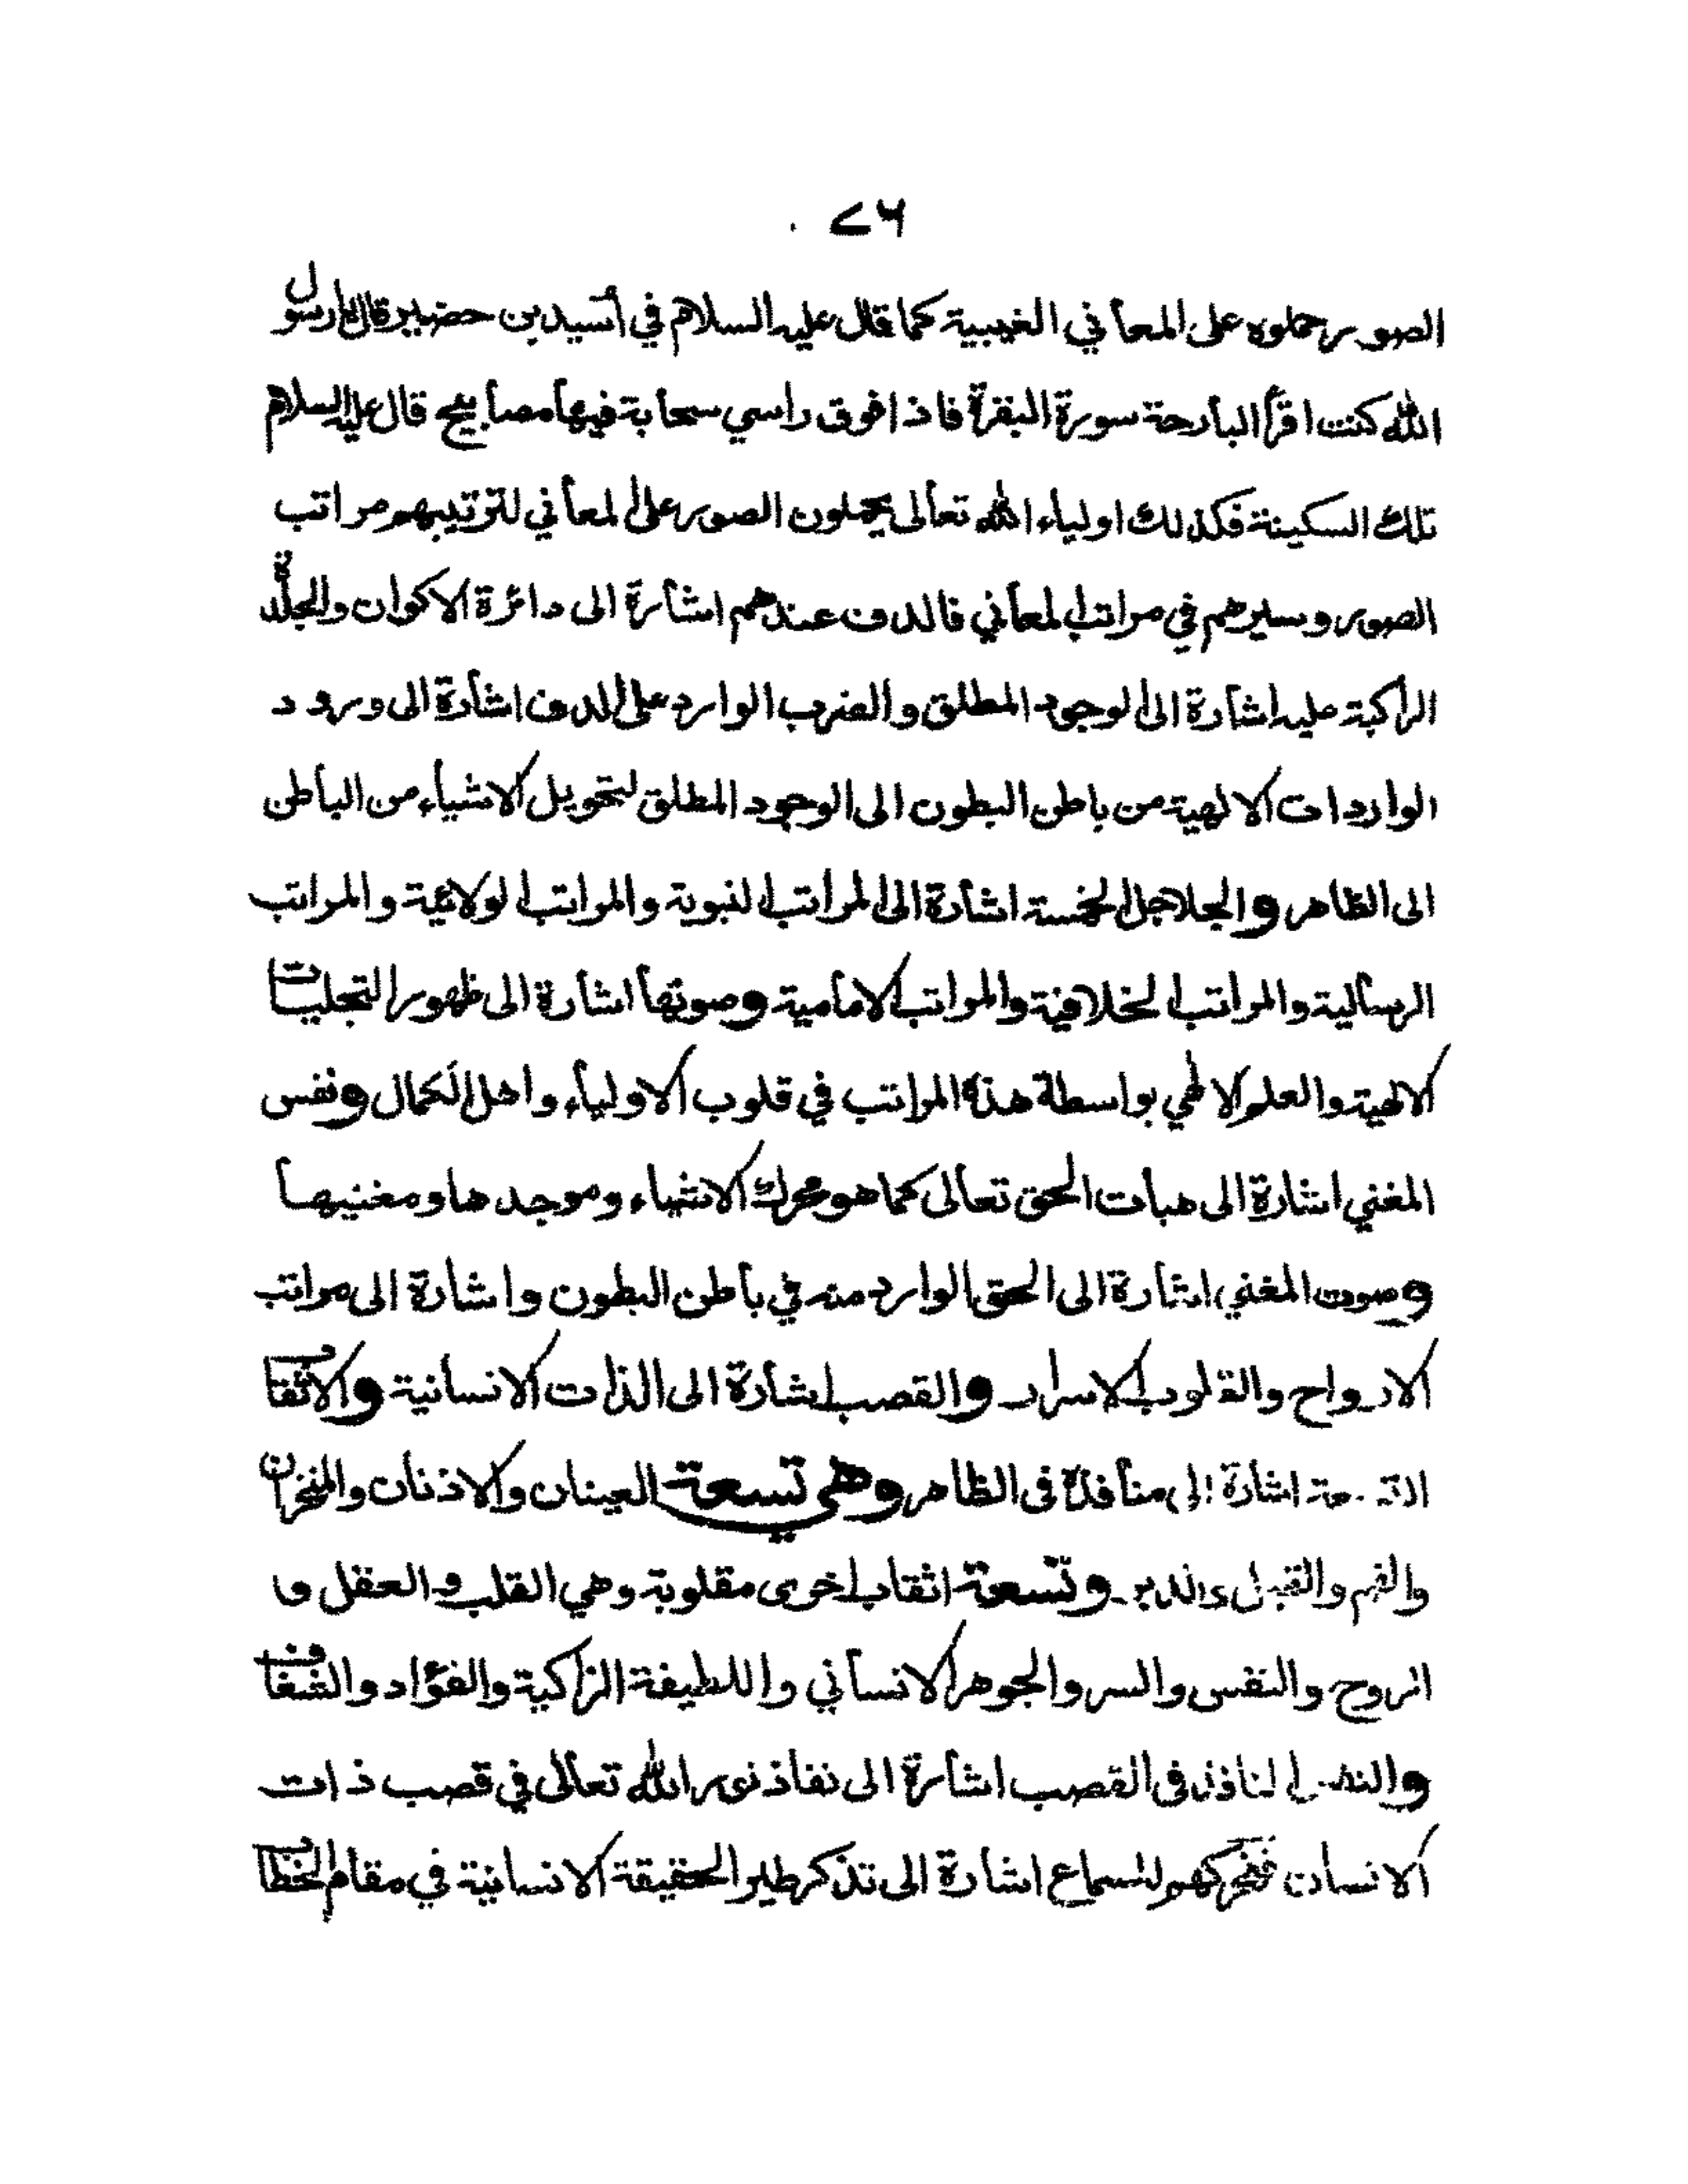 ٧٦
الصور حملوه على المعاني الغيبية كما قال عليه السلام في أسيد بن حضير قال يا رسول
الله كنت اقرأ البارحة سورة البقرة فاذا فوق راسي سحابة فيها مصابيح قال عليه السلام
تلك السكينة فكذلك اولياء الله تعالى يحملون الصور على المعاني لترتيبهم مراتب
الصور وسيرهم في مراتب المعاني فالدف عندهم اشارة الى دائرة الاكوان والجلدة
الراكبة عليه اشارة الى الوجود المطلق والضرب الوارد على الدف اشارة الى ورود
الواردات الالهية من باطن البطون الى الوجود المطلق لتحويل الاشياء من الباطن
الى الظاهر والجلاجل الخمسة اشارة الى المراتب النبوية والمراتب الولائية والمراتب
الرسالية والمراتب الخلافية والمراتب الامامية وصوتها اشارة الى ظهور التجليات
الالهية والعلم الالهي بواسطة هذه المراتب في قلوب الاولياء واهل الكمال ونفس
المغني اشارة الى هبات الحق تعالى كما هو محرك الاشياء وموجدها ومغنيها
وصوت المغني اشارة الى الحق الوارد منه في باطن البطون واشارة الى مراتب
الارواح والقلوب الاسرار والقصب اشارة الى الذات الانسانية والاثقاب
التسعة اشارة الى منافذه فى الظاهر وهي تسعة العينان والاذنان والمنخران
والفم والقبل والدبر وتسعة اثقاب اخرى مقلوبة وهي القلب والعقل و
الروح والنفس والسر والجوهر الانساني واللطيفة الزاكية والفؤاد والشغاف
والنفس النافذ فى القصب اشارة الى نفاذ نور الله تعالى في قصب ذات
الانسان فتحركهم للسماع اشارة الى تذكر طير الحقيقة الانسانية في مقام الخطاب